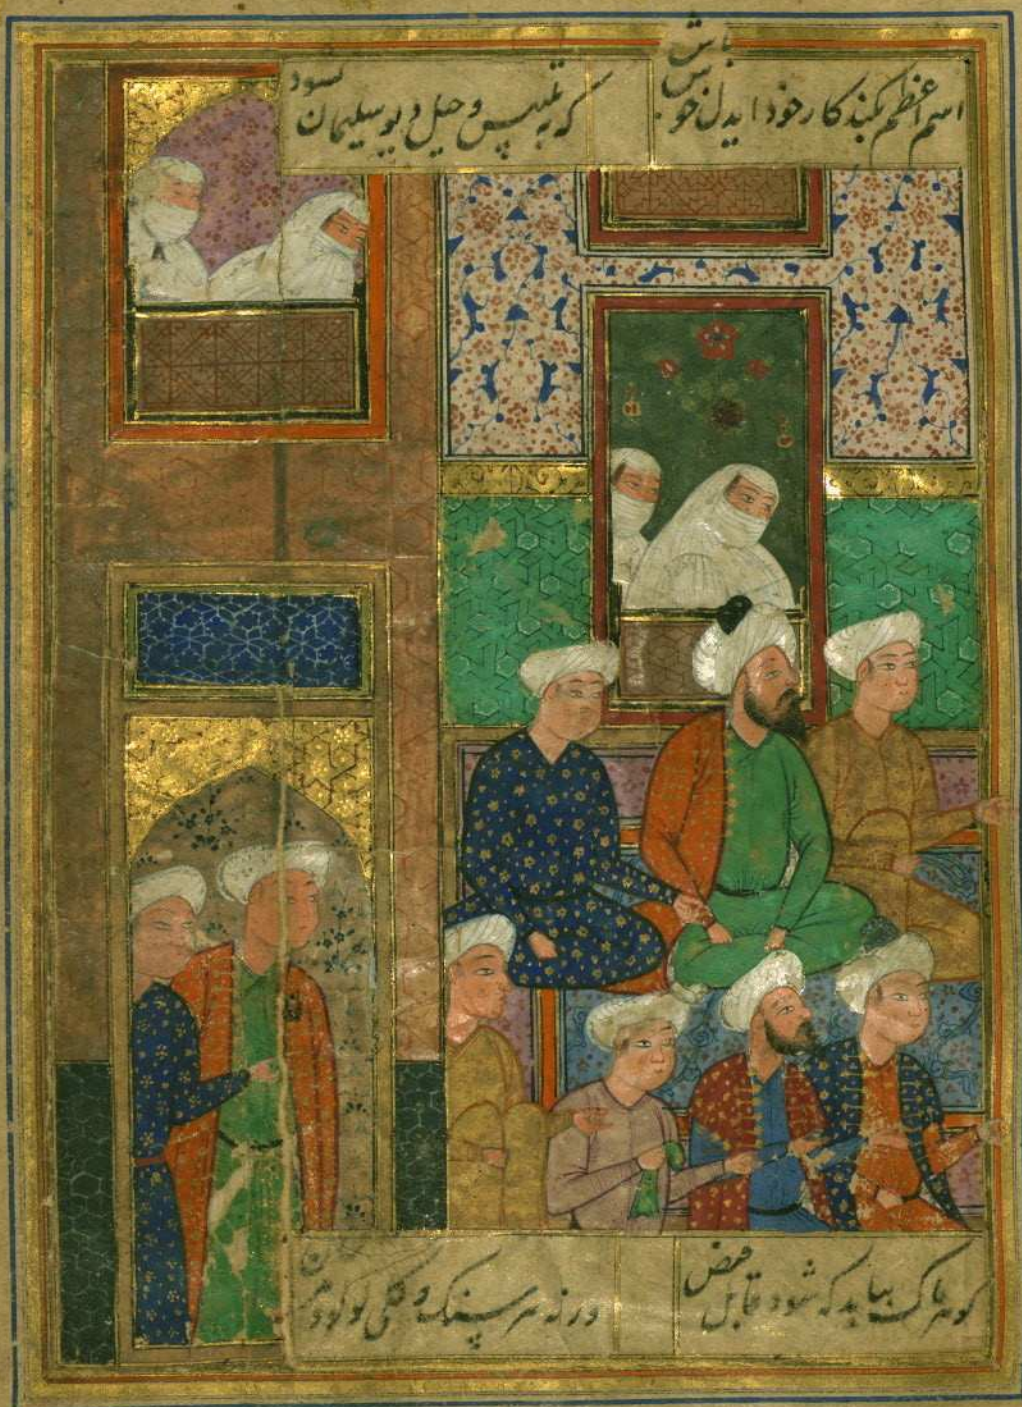 اسم اعظم بکند کار خود ایدل خوش باش
که به تلبیس و حیل دیو سلیمان نشود
کوهر پاک بباید که شود قابل فیض
ورنه هر سنک و کلی لولو و مرجان